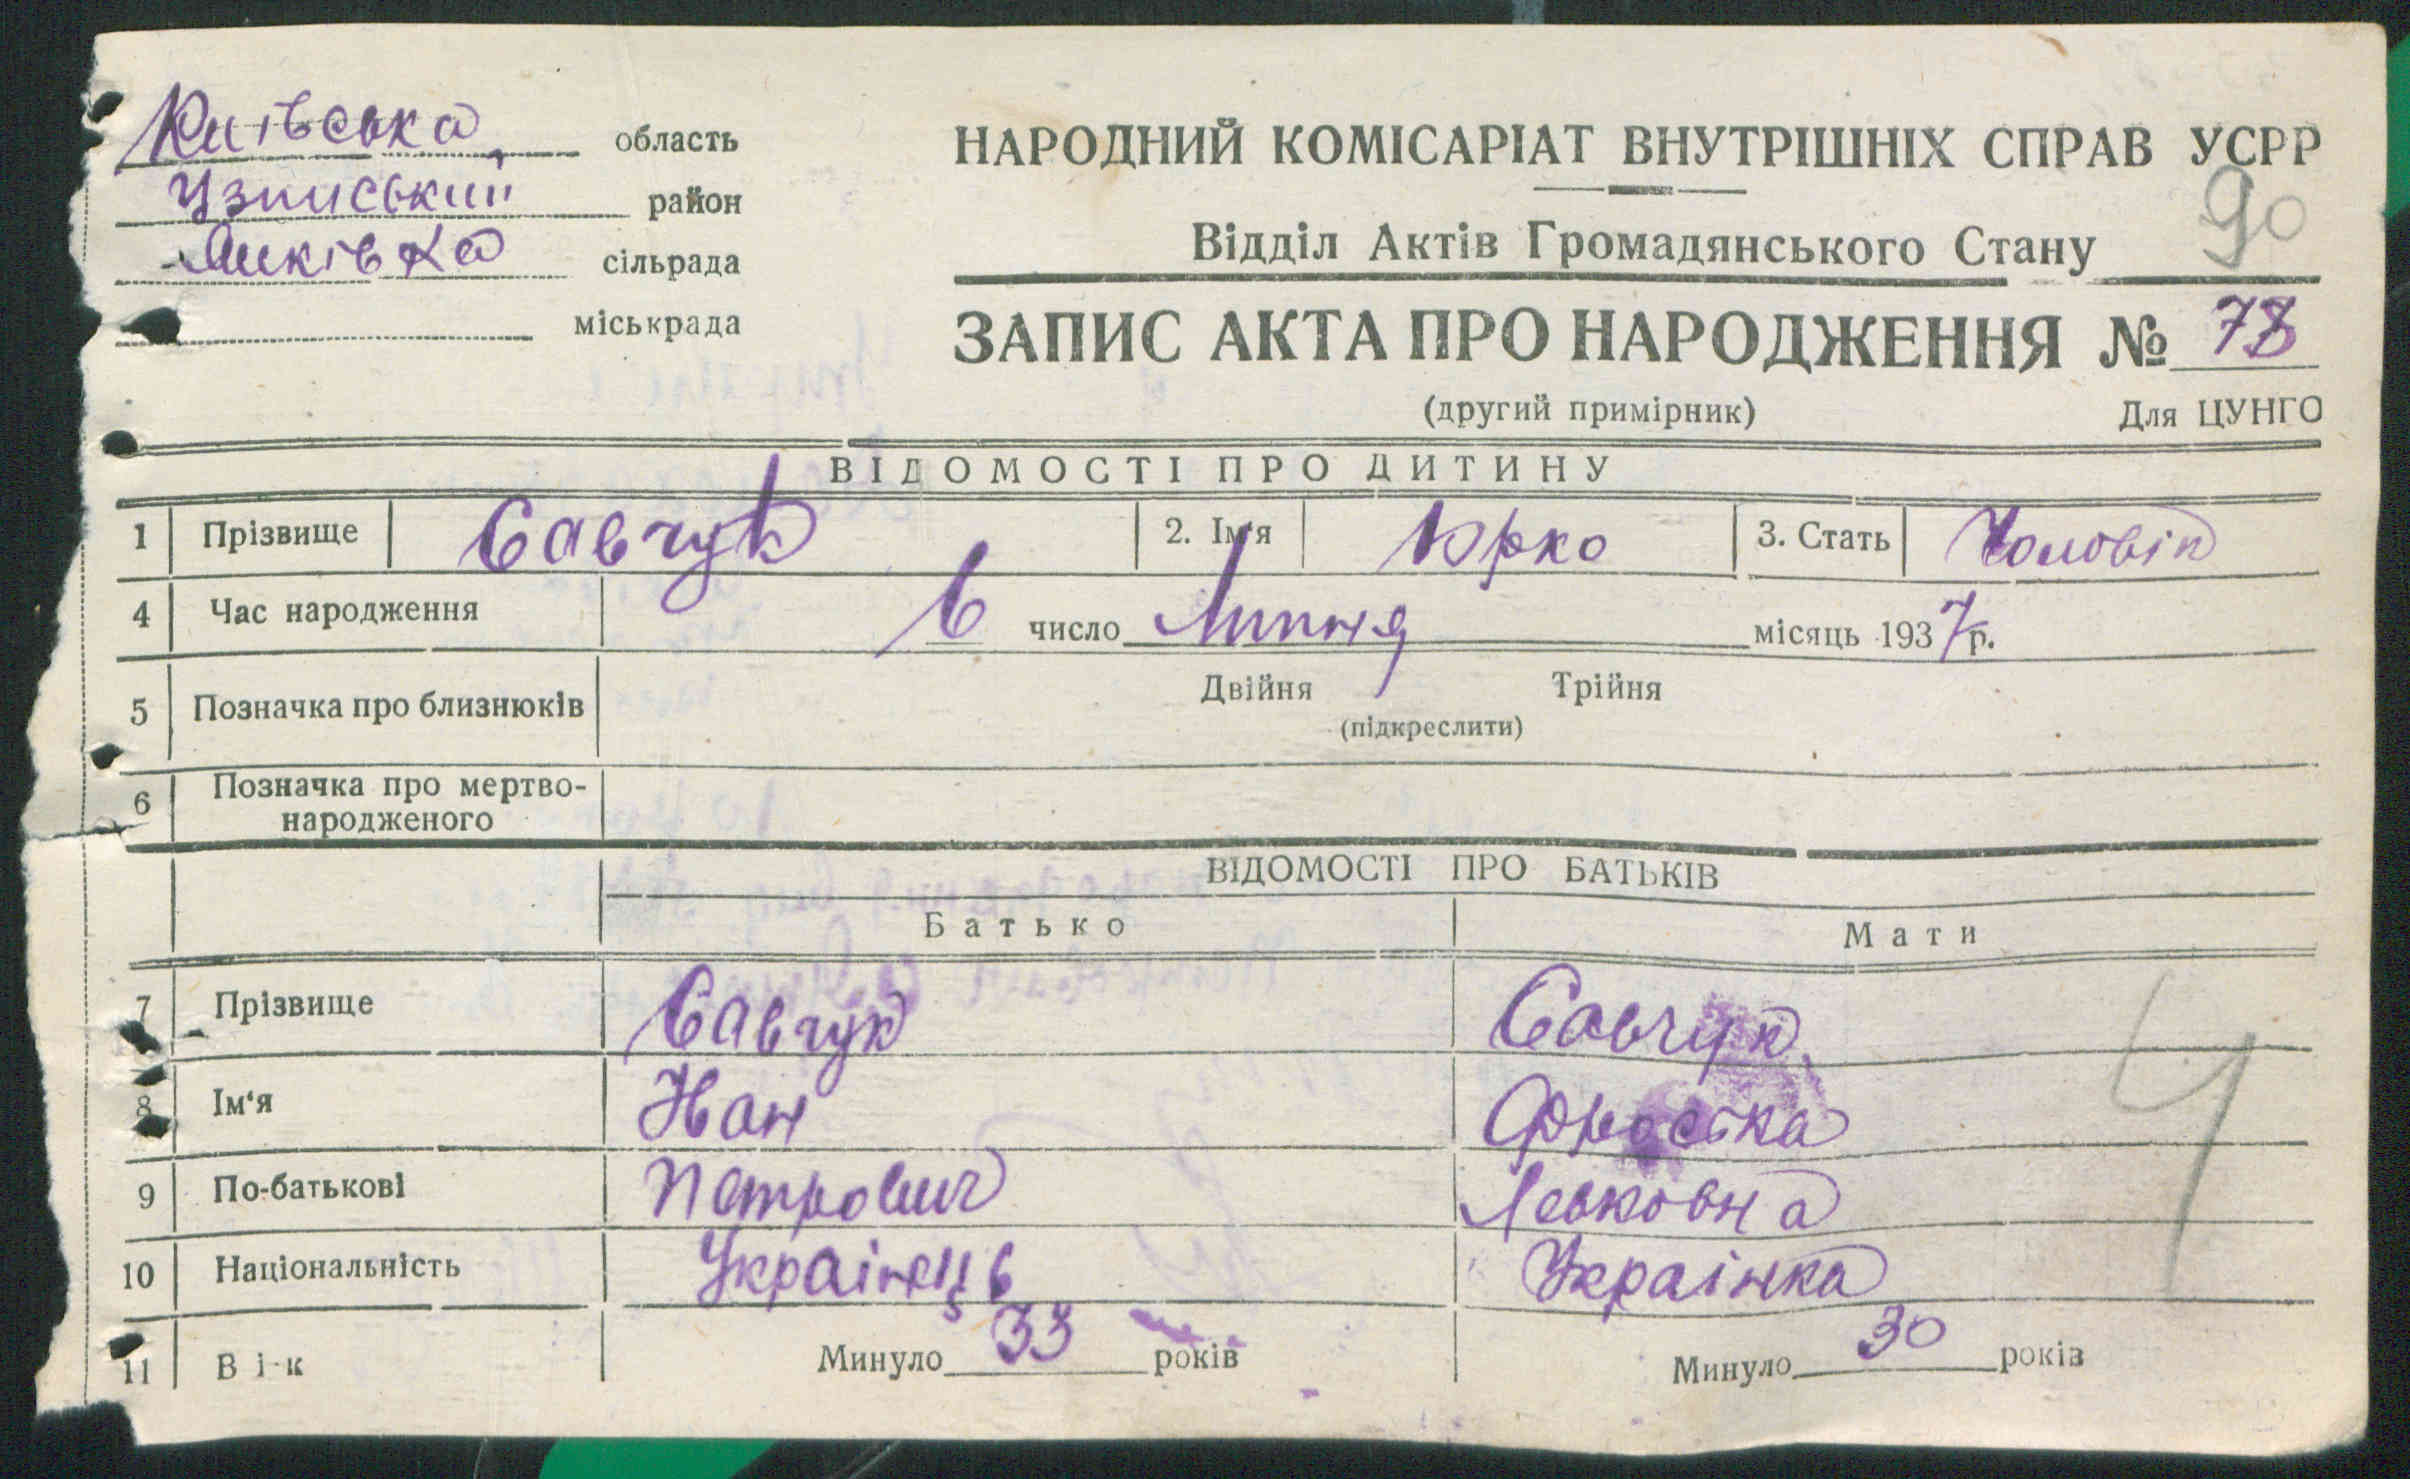 Київська область
Узинський район
Янківка сільрада
міськрада
НАРОДНИЙ КОМІСАРІАТ ВНУТРІШНІХ СПРАВ УСРР
90
Відділ Актів Громадянського Стану
ЗАПИС АКТА ПРО НАРОДЖЕННЯ № 78
(другий примірник) Для ЦУНГО
ВІДОМОСТІ ПРО ДИТИНУ
1 Прізвище Савчук 2. Ім'я Юрко 3. Стать Чоловік
4 Час народження 6 число Липня місяць 1937 р.
5 Позначка про близнюків Двійня Трійня
(підкреслити)
6 Позначка про мертво-
народженого
ВІДОМОСТІ ПРО БАТЬКІВ
Батько Мати
7 Прізвище Савчук Савчук
8 Ім'я Іван
9 По-батькові Петрович Левковна
10 Національність Українець Українка
11 Вік Минуло 33 років Минуло 30 років